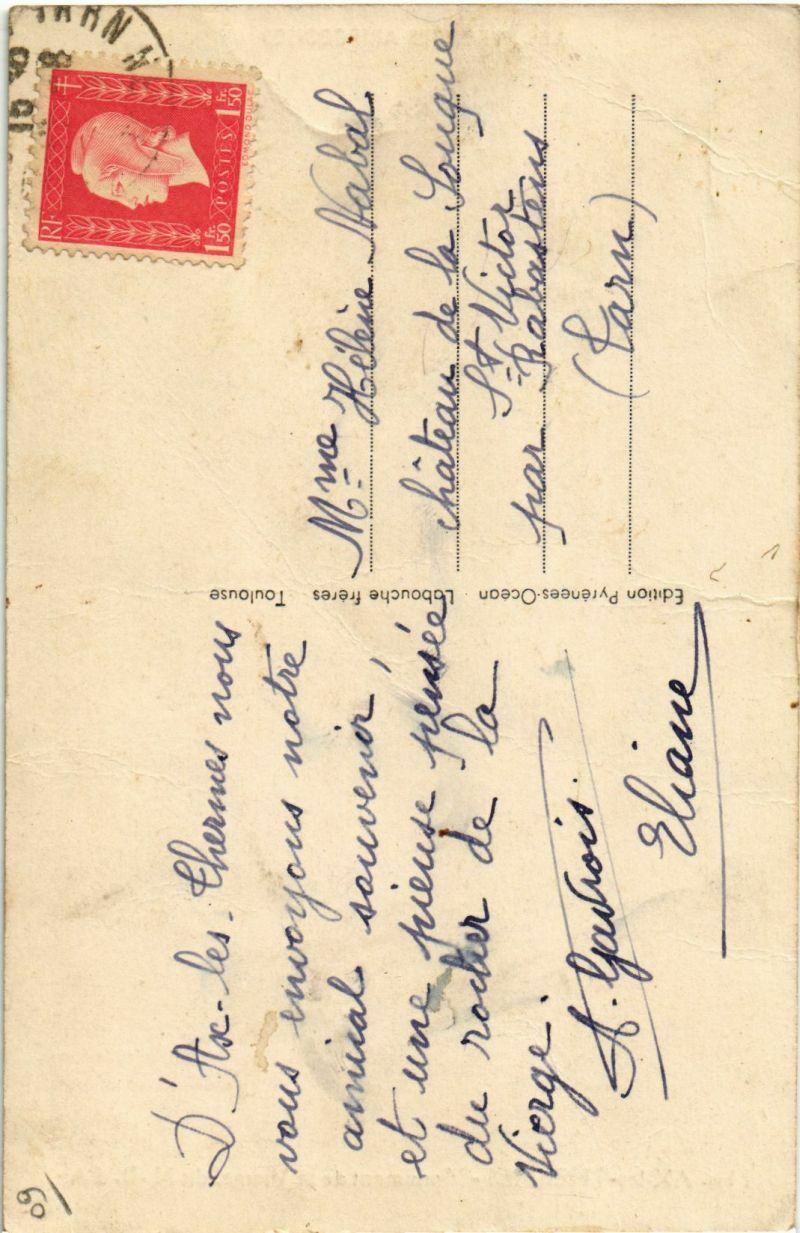 D'Ax-les-Thermes nous
vous envoyons notre
amical souvenir
et une pieuse pensée
du rocher de la
Vierge.
Eliane
Edition Pyrénées-Océan . Labouche frères Toulouse
RF
1Fr.50
POSTES
1Fr.50
EDMOND DULAC
TARN
Mme Hélène Nabal
château de la Souque
St Victor
par Rabastens
(Tarn)
09